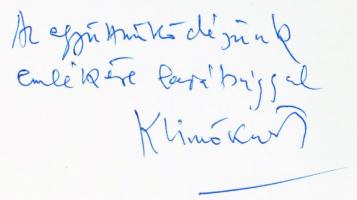 Az együttműködésünk
emlékére barátsággal
Klimó Károly